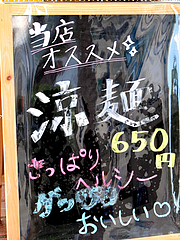 当店
オススメ
涼麺
650
円
さっぱり
ヘルシー
おいしい♡